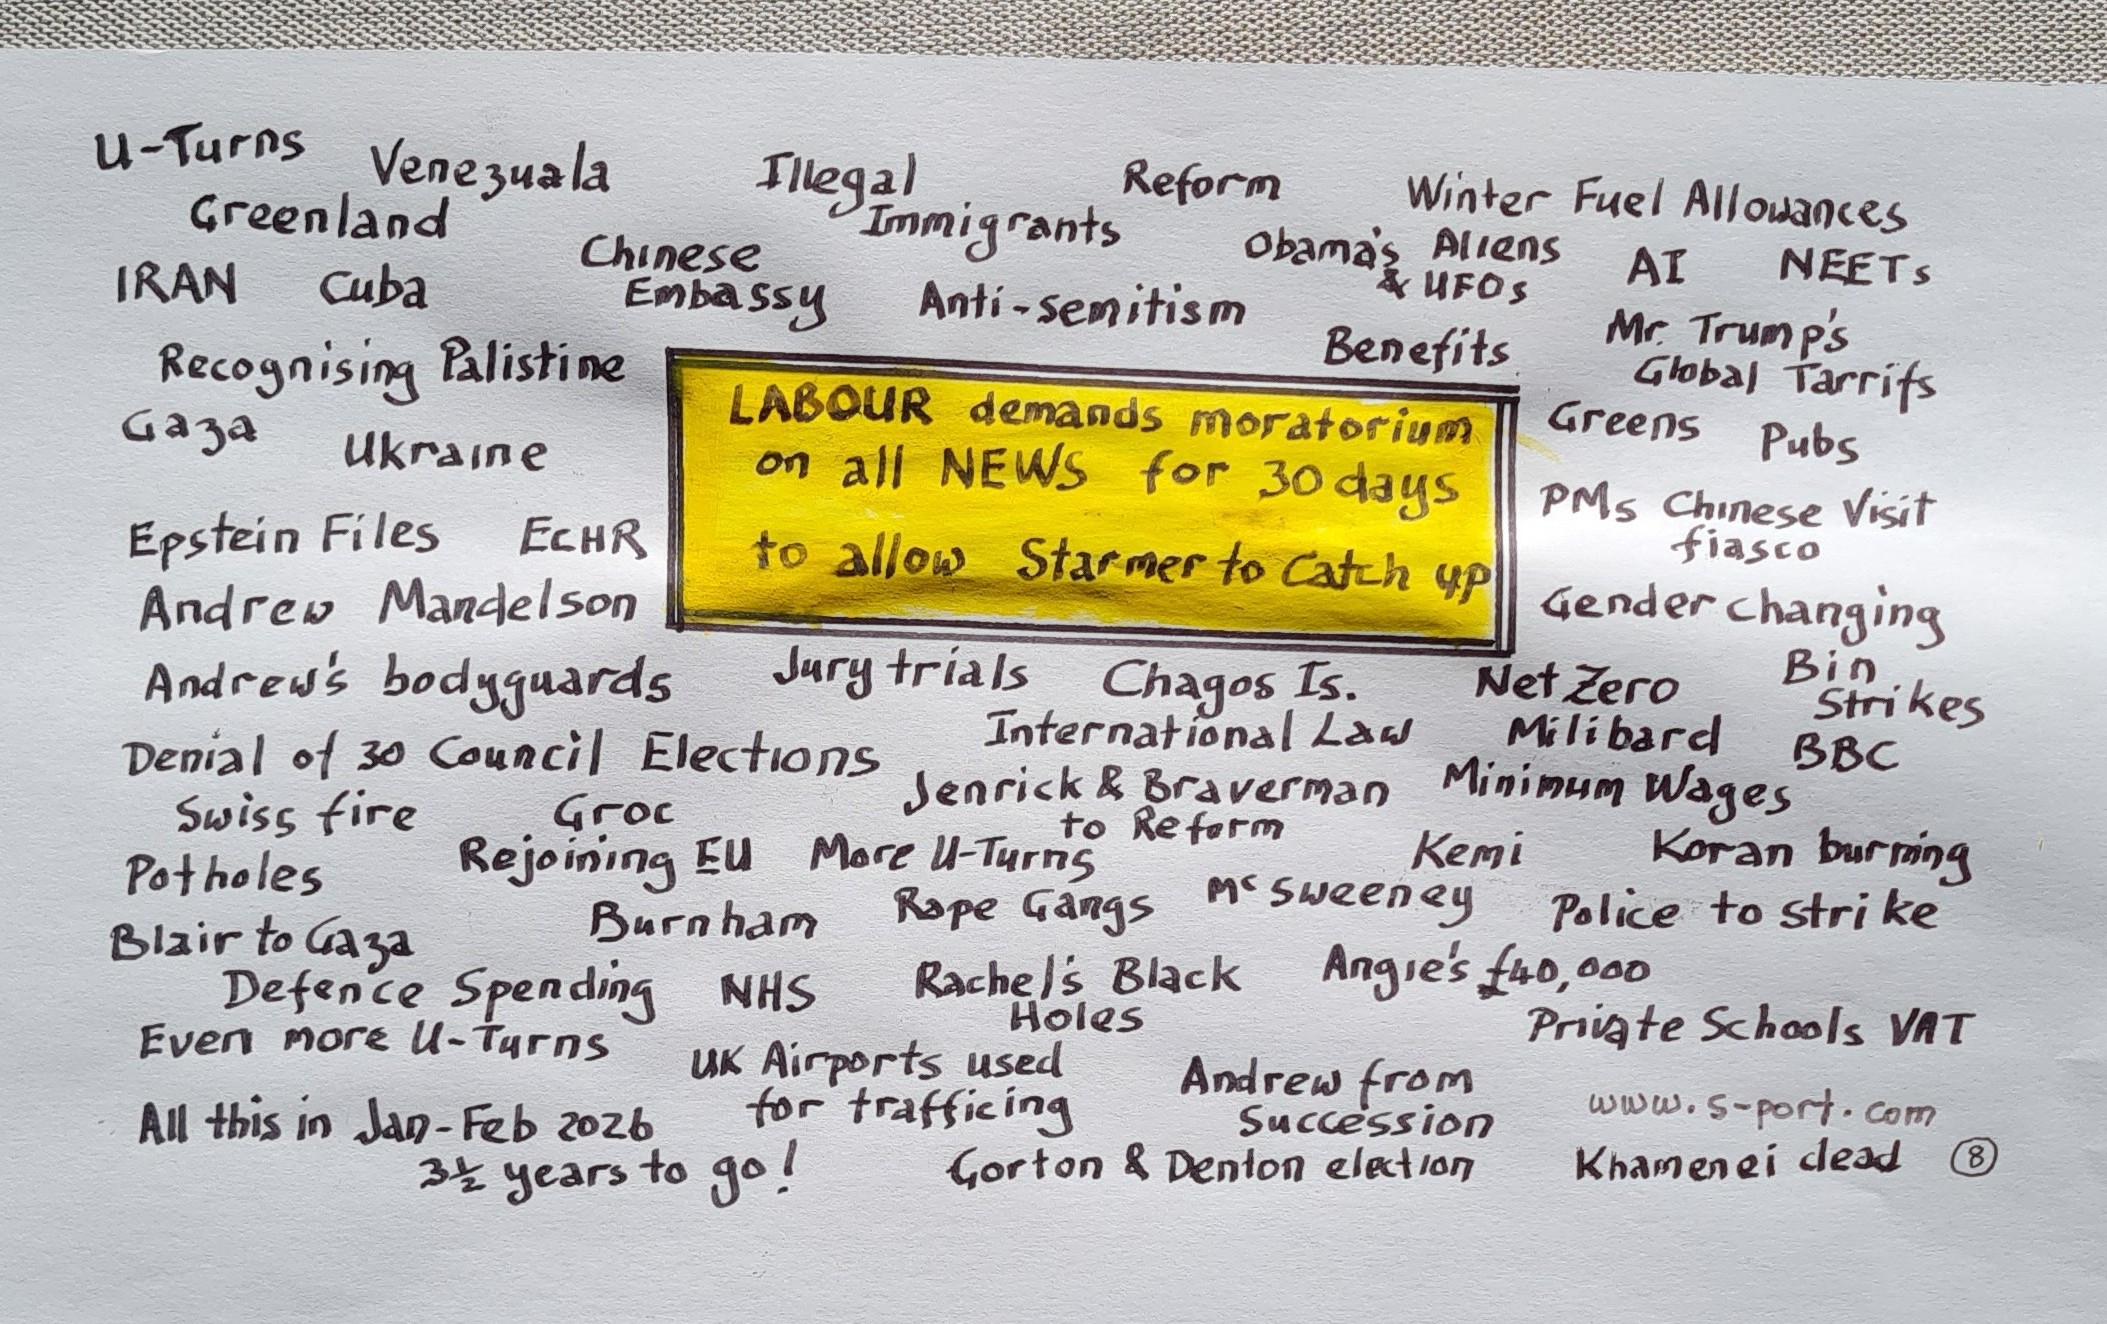 U-Turns
Venezuala
Illegal
Immigrants
Reform
Winter Fuel Allowances
Greenland
Chinese
Embassy
Obama's Aliens
& UFOs
AI
NEETs
IRAN
Cuba
Anti-semitism
Benefits
Mr. Trump's
Global Tarrifs
Recognising Palistine
Gaza
Ukraine
LABOUR demands moratorium
on all NEWS for 30 days
to allow Starmer to Catch up
Greens
Pubs
PMs Chinese Visit
fiasco
Epstein Files
ECHR
Andrew
Mandelson
Gender changing
Andrew's bodyguards
Jury trials
Chagos Is.
Net Zero
Bin
Strikes
Denial of 30 Council Elections
International Law
Milibard
BBC
Swiss fire
Groc
Jenrick & Braverman
to Reform
Minimum Wages
Potholes
Rejoining EU
More U-Turns
Kemi
Koran burning
Blair to Gaza
Burnham
Rape Gangs
McSweeney
Police to strike
Defence Spending
NHS
Rachel's Black
Holes
Angie's £40,000
Even more U-Turns
UK Airports used
for trafficing
Andrew from
Succession
Private Schools VAT
All this in Jan-Feb 2026
3½ years to go!
Gorton & Denton election
www.s-port.com
Khamenei dead
8